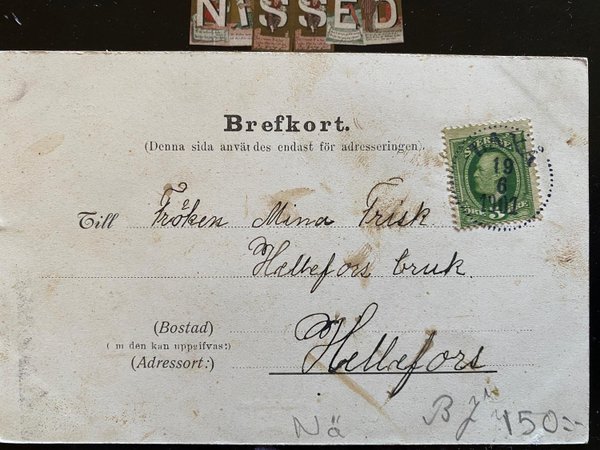 NISSED
Brefkort.
(Denna sida användes endast för adresseringen).
SVERIGE
19
6
1901
Till Fröken Mina Frisk
Hellefors bruk
(Bostad)
(om den kan uppgifvas:)
(Adressort:) Hellefors
Nä
150:-